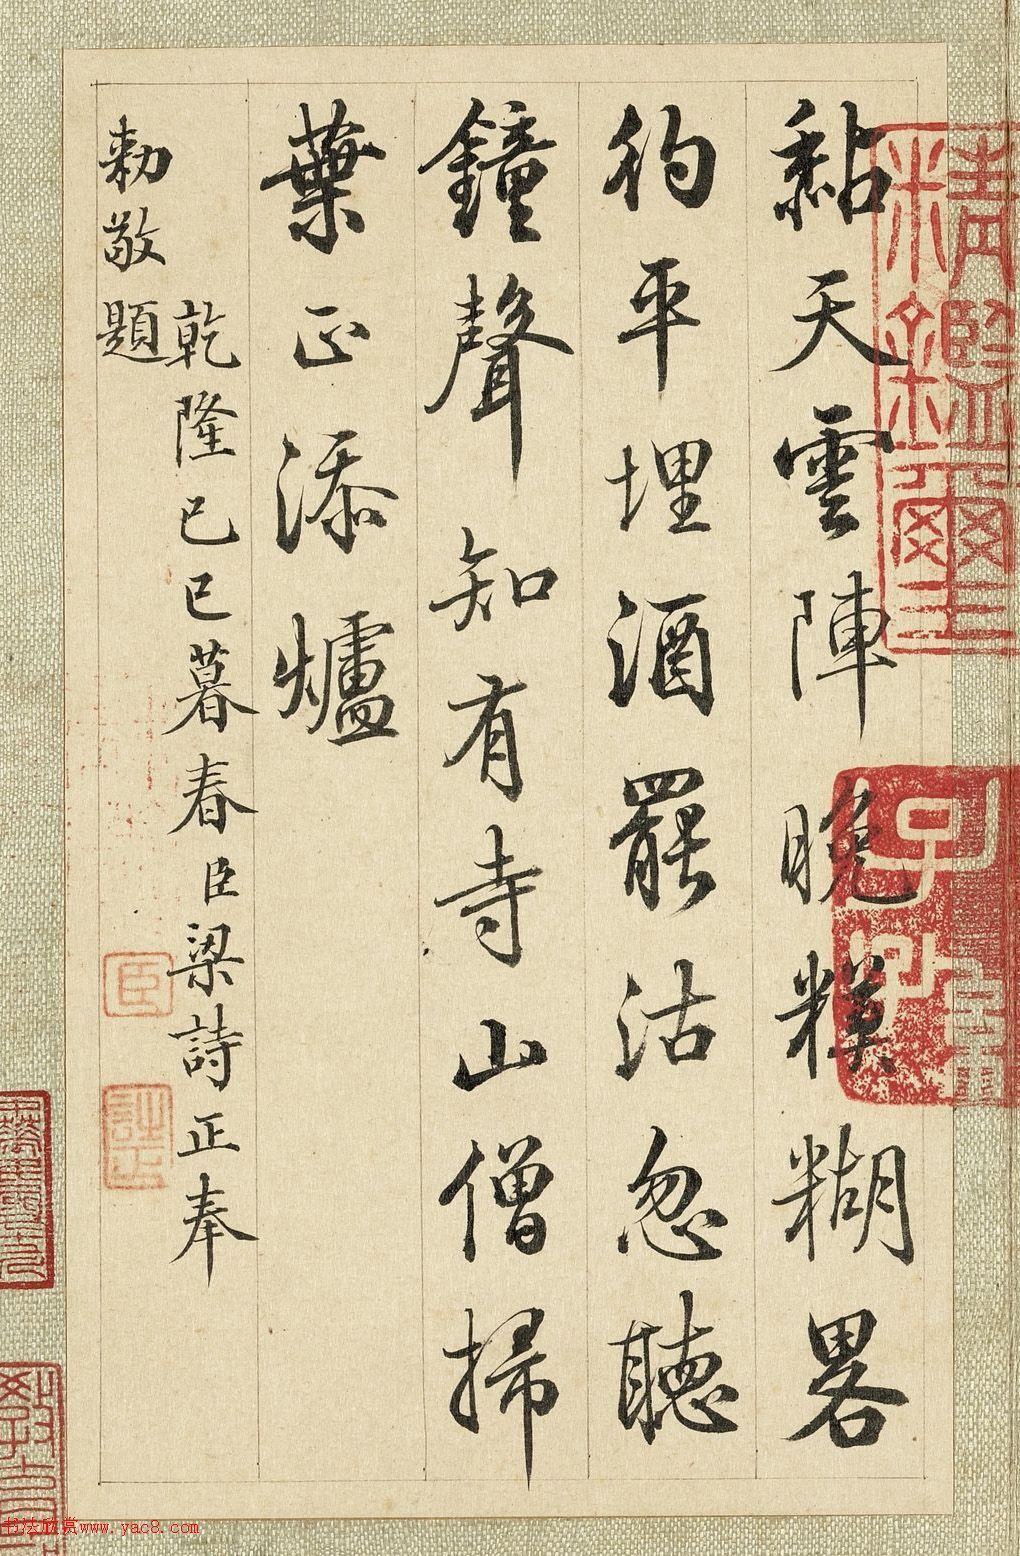 黏天雲陣晚糢糊畧
彴平埋酒罷沽忽聽
鐘聲知有寺山僧掃
葉正添爐
乾隆己巳暮春臣梁詩正奉
勅敬題
臣
詩正
書法欣赏www.yac8.com